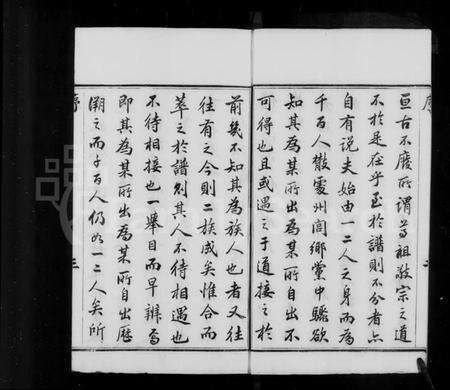 亘古不廢所謂尊祖敬宗之道
不於是在乎至於譜則不分者亦
自有説夫始由一二人之身而為
千百人散處州閭鄉黨中驟欲
知其為某所出為某所自出不
可得也且或遇之于道接之於
前幾不知其為族人也者又往
往有之今則二族咸矣惟合而
萃之於譜則其人不待相遇也
不待相接也一舉目而早辦為
即其為某所出為某所自出歷
溯之而千百人仍如一二人矣所
序
二
序
三